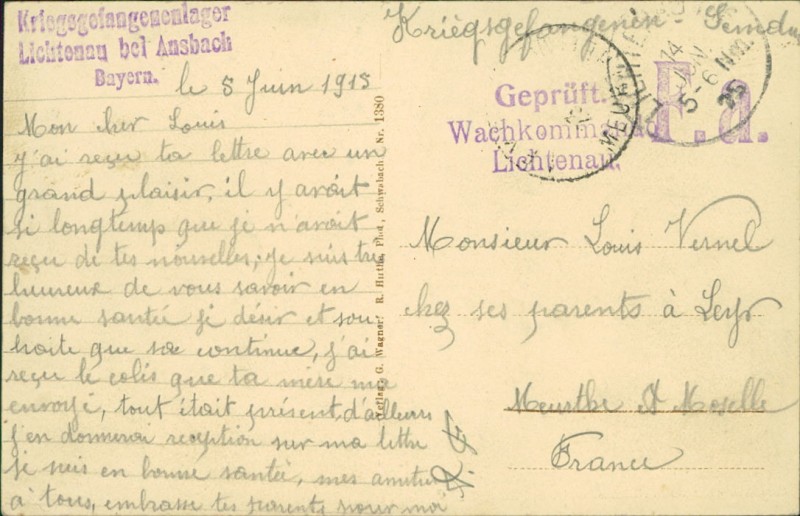 Kriegsgefangenenlager
Lichtenau bei Ansbach
Bayern.
le 5 Juin 1915
Mon cher Louis
j'ai reçu ta lettre avec un
grand plaisir, il y avait
si longtemp que je n'avait
reçu de tes nouvelles, je suis tre
heureux de vous savoir en
bonne santée je désir et sou
haite que sa continue, j'ai
reçu le colis que ta mère ma
envoyé, tout était présent, d'ailleurs
j'en donnerai reception sur ma lettre
je suis en bonne santée, mes amitiés
à tous, embrasse tes parents pour moi
Verlag: G. Wagner. R. Huth, Phot., Schwabach. Nr. 1380
Kriegsgefangenen-Sendu
Geprüft.
Wachkommando
Lichtenau.
F. a.
14
5-6 Nm.
25
MEURTHE
Monsieur Louis Vernel
chez ses parents à Leyr
Meurthe et Moselle
France